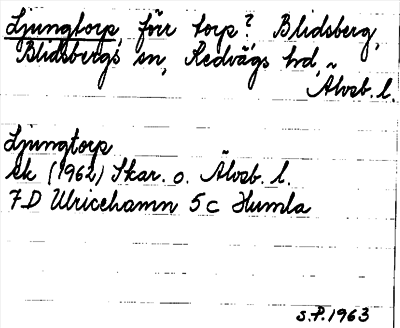 Ljungtorp, förr torp? Blidsberg,
Blidsbergs sn, Redvägs hd,
Älvsb. l.
Ljungtorp
Ek (1962) Skar. o. Älvsb. l.
7D Ulricehamn 5c Humla
S.P. 1963